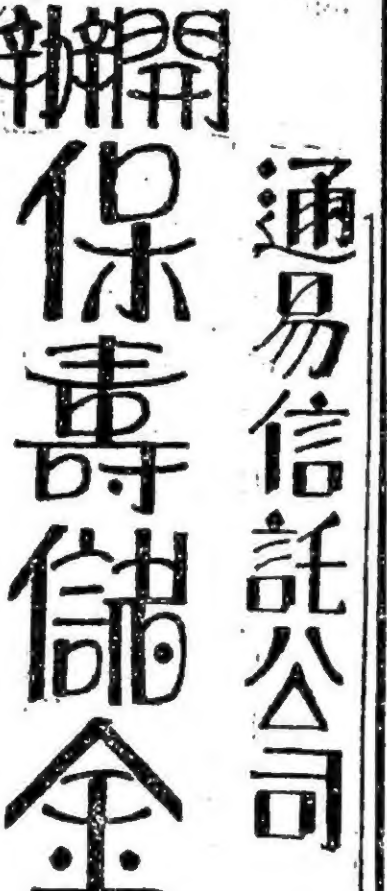 通易信託公司
開辦
保壽儲金